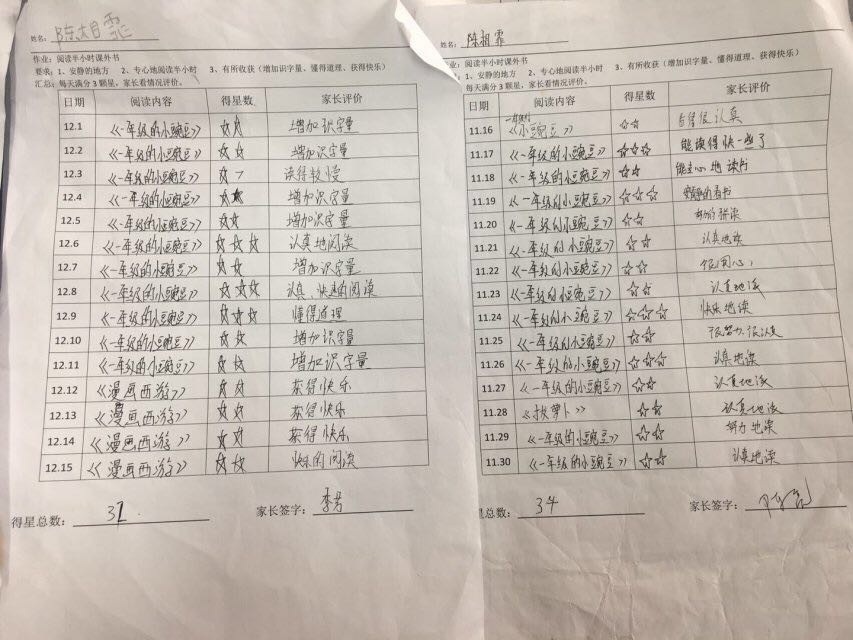 姓名：陈相霏
作业：阅读半小时课外书
要求：1、安静的地方 2、专心地阅读半小时 3、有所收获（增加识字量、懂得道理、获得快乐）
汇总：每天满分3颗星，家长看情况评价。
日期 阅读内容 得星数 家长评价
12.1 《一年级的小豌豆》 ☆☆ 增加识字量
12.2 《一年级的小豌豆》 ☆☆ 增加识字量
12.3 《一年级的小豌豆》 ☆ 读得较慢
12.4 《一年级的小豌豆》 ☆☆ 增加识字量
12.5 《一年级的小豌豆》 ☆☆ 增加识字量
12.6 《一年级的小豌豆》 ☆☆☆ 认真地阅读
12.7 《一年级的小豌豆》 ☆☆ 增加识字量
12.8 《一年级的小豌豆》 ☆☆☆ 认真、快速的阅读
12.9 《一年级的小豌豆》 ☆☆☆ 懂得道理
12.10 《一年级的小豌豆》 ☆☆ 增加识字量
12.11 《一年级的小豌豆》 ☆☆ 增加识字量
12.12 《漫画西游》 ☆☆ 获得快乐
12.13 《漫画西游》 ☆☆ 获得快乐
12.14 《漫画西游》 ☆☆ 获得快乐
12.15 《漫画西游》 ☆☆ 快乐的阅读
得星总数：32 家长签字：李芳
姓名：陈相霏
作业：阅读半小时课外书
要求：1、安静的地方 2、专心地阅读半小时 3、有所收获（增加识字量、懂得道理、获得快乐）
每天满分3颗星，家长看情况评价。
日期 阅读内容 得星数 家长评价
11.16 一年级的《小豌豆》 ☆☆ 认真
11.17 《一年级的小豌豆》 ☆☆☆ 能读得快一些了
11.18 《一年级的小豌豆》 ☆☆ 能专心地读书
11.19 《一年级的小豌豆》 ☆☆☆ 安静的看书
11.20 《一年级的小豌豆》 ☆☆
11.21 《一年级的小豌豆》 ☆☆☆ 认真地读
11.22 《一年级的小豌豆》 ☆☆ 很用心
11.23 《一年级的小豌豆》 ☆☆ 认真地读
11.24 《一年级的小豌豆》 ☆☆☆ 快乐地读
11.25 《一年级的小豌豆》 ☆☆ 很努力、很认真
11.26 《一年级的小豌豆》 ☆☆☆ 认真地读
11.27 《一年级的小豌豆》 ☆☆ 认真地读
11.28 《拔萝卜》 ☆☆ 认真地读
11.29 《一年级的小豌豆》 ☆☆ 努力地读
11.30 《一年级的小豌豆》 ☆☆ 认真地读
总数：34 家长签字：